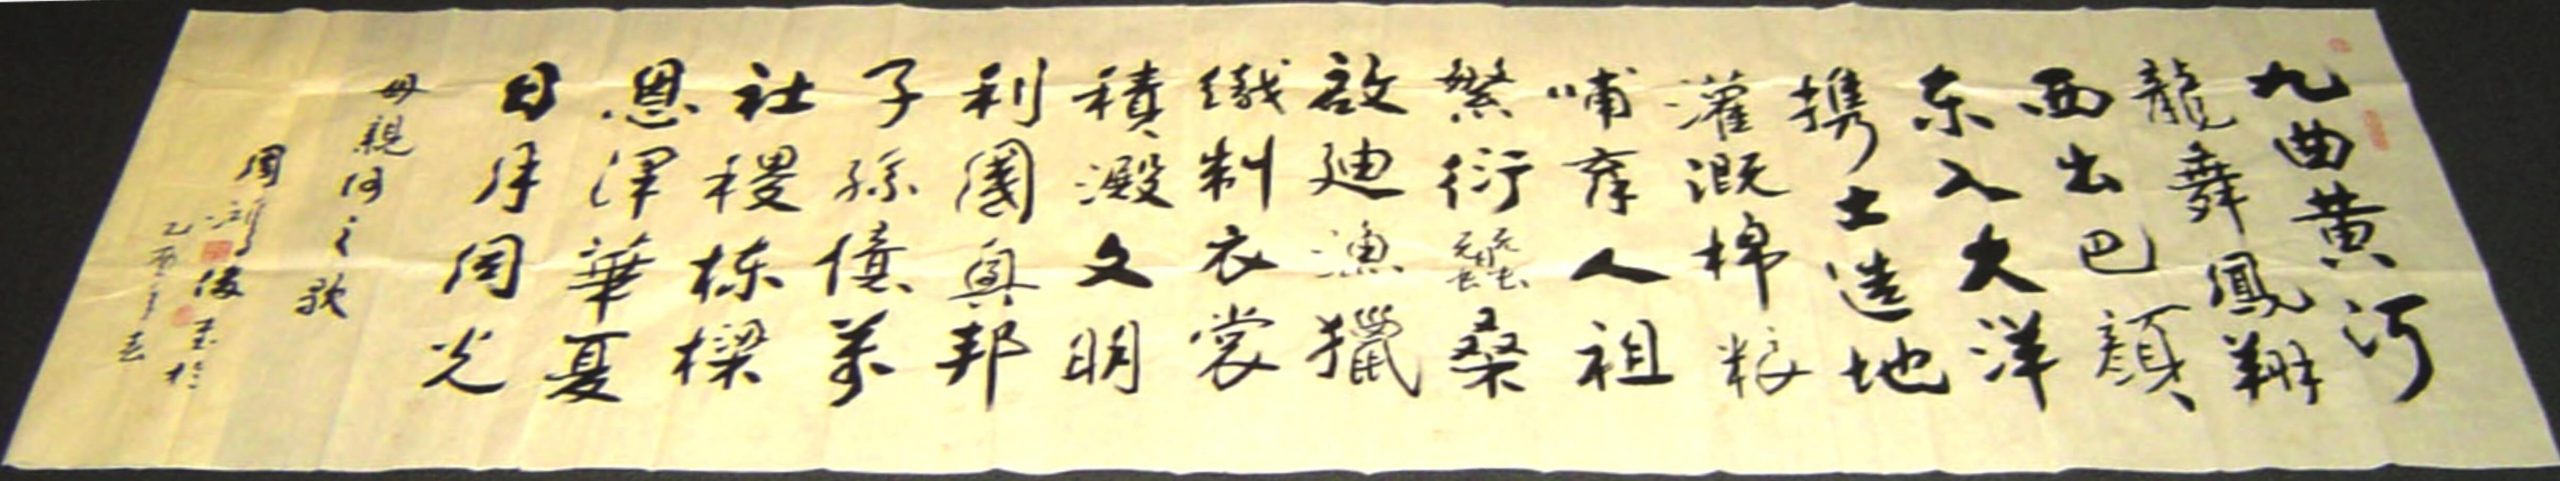 九曲黄河
龍舞鳳翔
西出巴顔
东入大洋
携土造地
灌溉棉粮
哺育人祖
繁衍蠶桑
啟迪漁獵
織制衣裳
積澱文明
利國興邦
子孫億萬
社稷栋樑
恩澤華夏
日月同光
母親河之歌
周鴻俊書於
乙酉年春